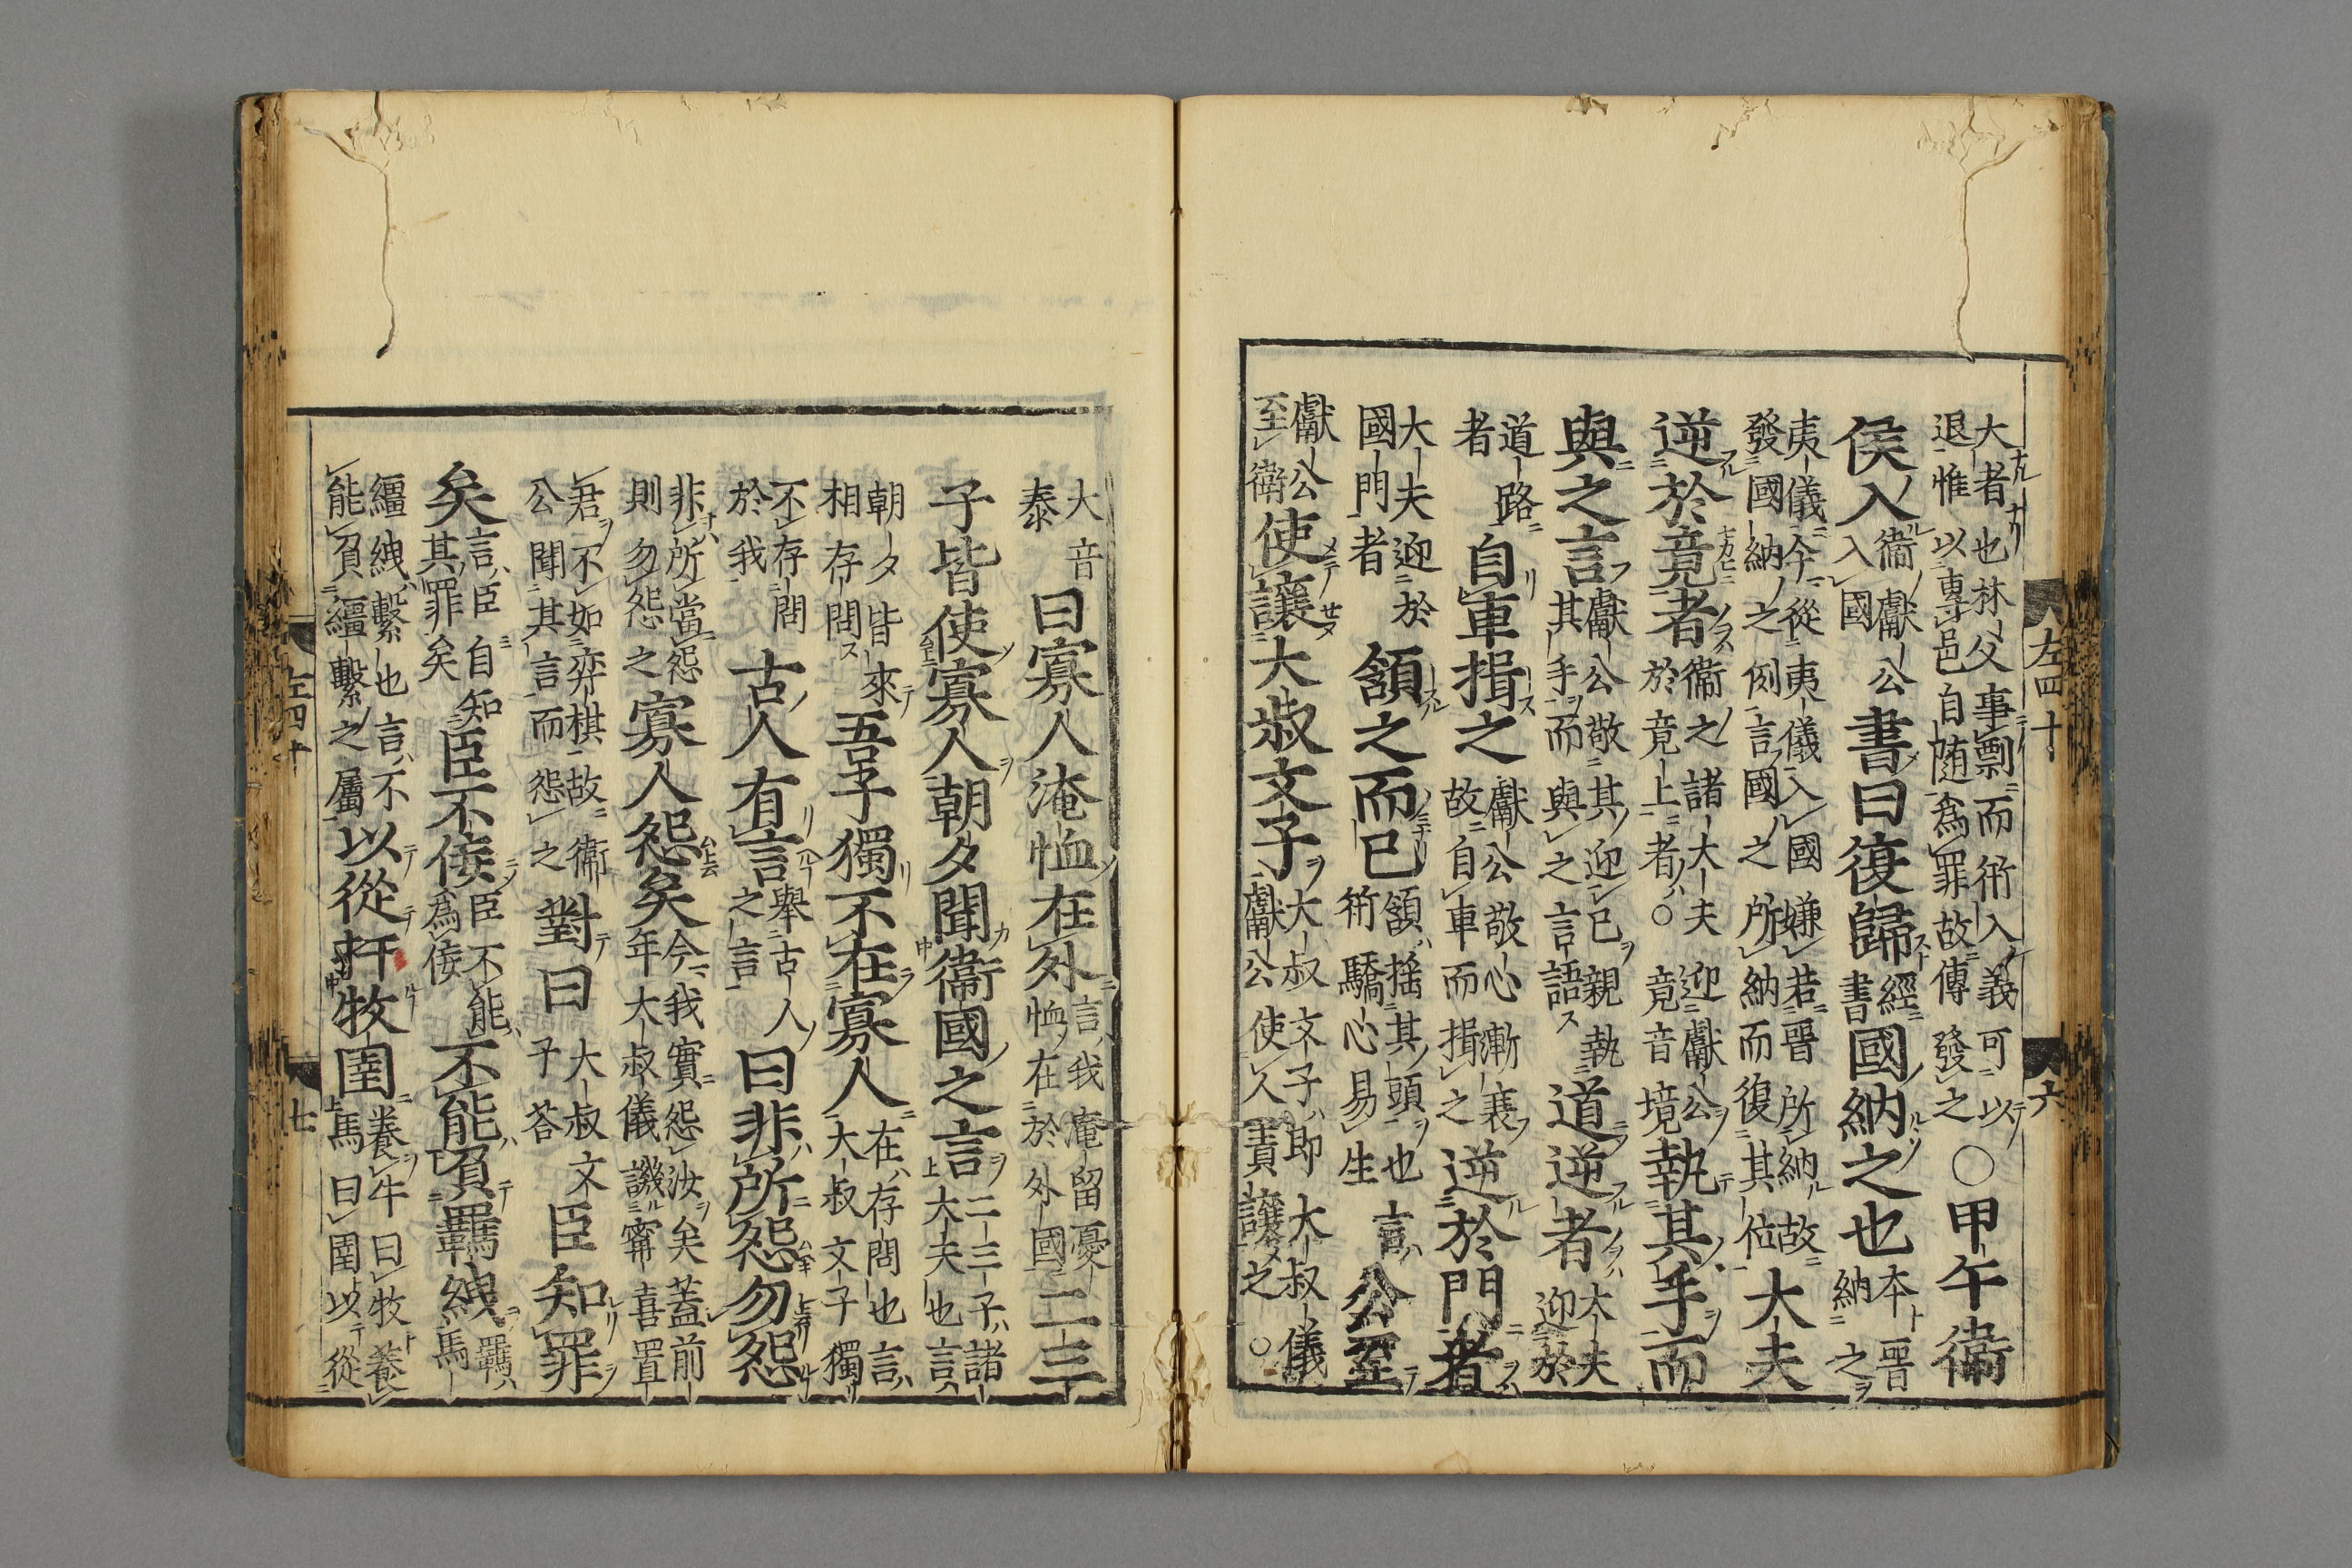 左四十 六
大者也林父事剽而衎入義可以
退惟以專邑自随為罪故傳發之〇甲午衞
侯入衞獻公入國書曰復歸經書國納之也本晉納之
夷儀今從夷儀入國嫌若晉所納故
發國納之例言國之所納而復其位大夫
逆於竟者衞之諸大夫迎獻公於竟上者〇竟音境執其手而
與之言獻公敬其迎已親執其手而與之言語道逆者大夫迎於
道路者自車揖之獻公敬心漸衰故自車而揖之逆於門者
大夫迎於國門者頷之而已頷搖其頭也言衎驕心易生公至
獻公至衞使讓大叔文子大叔文子即大叔儀獻公使人責讓之〇
大音泰曰寡人淹恤在外言我庵留憂恤在於外國二三
子皆使寡人朝夕聞衞國之言二三子諸大夫也言
朝夕皆來相存問吾子獨不在寡人在存問也言大叔文子獨
不存問於我古人有言舉古人之言曰非所怨勿怨
非所當怨則勿怨之寡人怨矣今我實怨汝矣蓋前年大叔儀譏寗喜置
君不如弈棋故衞公聞其言而怨之對曰大叔文子荅臣知罪
矣言臣自知其罪矣臣不佞臣不能為佞不能負羈絏羈馬
繮絏繫也言不能負繮繫之屬以從扞牧圉養牛曰牧養馬曰圉以從
左四十 七